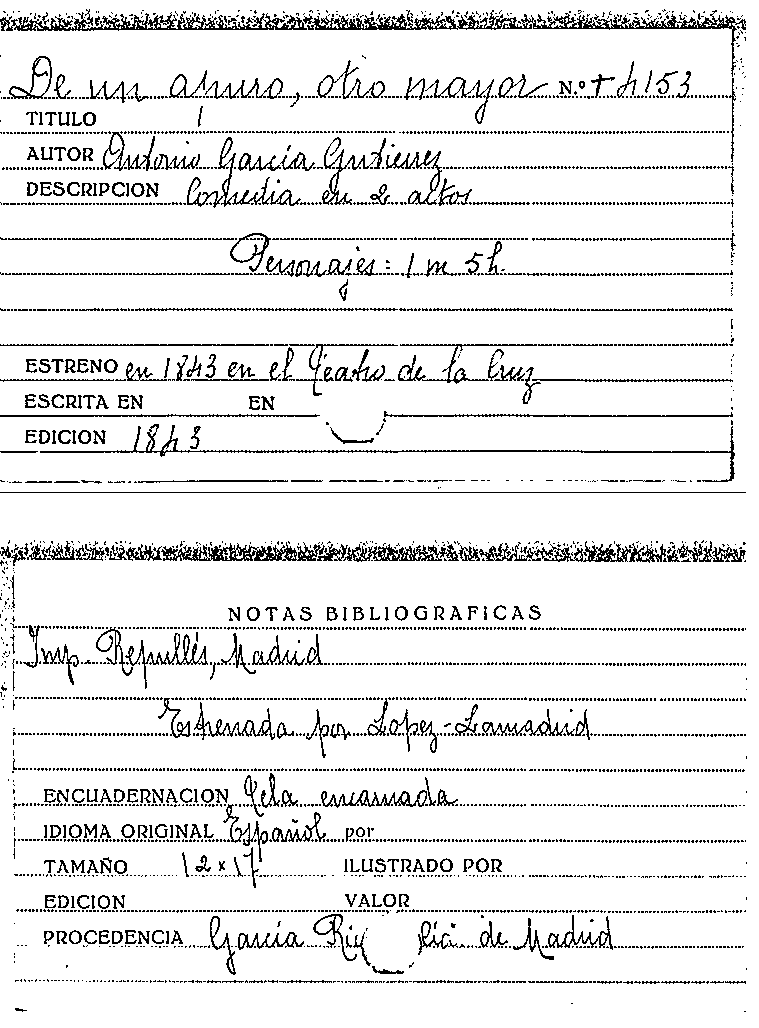 De un apuro, otro mayor N.º + 4153
TITULO
AUTOR Antonio García Gutierrez
DESCRIPCION Comedia en 2 actos
Personajes: 1 m 5 h.
ESTRENO en 1843 en el Teatro de la Cruz
ESCRITA EN EN
EDICION 1843
NOTAS BIBLIOGRAFICAS
Imp. Repullés, Madrid
Estrenada por Lopez-Lamadrid
ENCUADERNACION Tela encarnada
IDIOMA ORIGINAL Español por
TAMAÑO 12 x 17 ILUSTRADO POR
EDICION VALOR
PROCEDENCIA García de Madrid